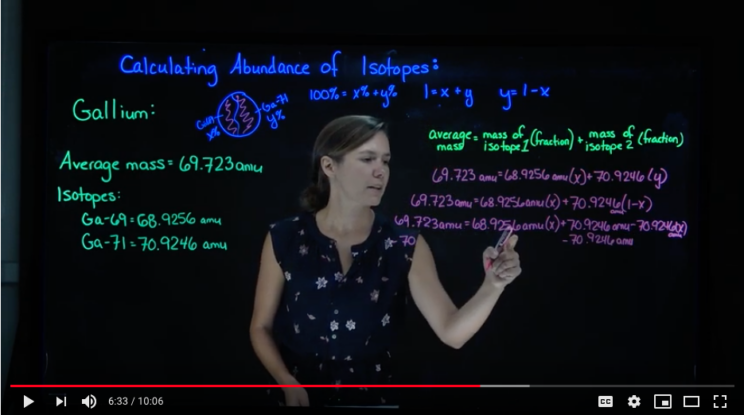 Calculating Abundance of Isotopes:
100% = x% + y%  1 = x + y  y = 1 - x
Gallium:
Ga-71
y%
x%
average mass = mass of isotope 1 (fraction) + mass of isotope 2 (fraction)
Average mass = 69.723 amu
69.723 amu = 68.9256 amu (x) + 70.9246 (y)
Isotopes:
69.723 amu = 68.9256 amu (x) + 70.9246 amu (1-x)
Ga-69 = 68.9256 amu
69.723 amu = 68.9256 amu (x) + 70.9246 amu - 70.9246 amu (x)
Ga-71 = 70.9246 amu
- 70
- 70.9246 amu
6:33 / 10:06
CC